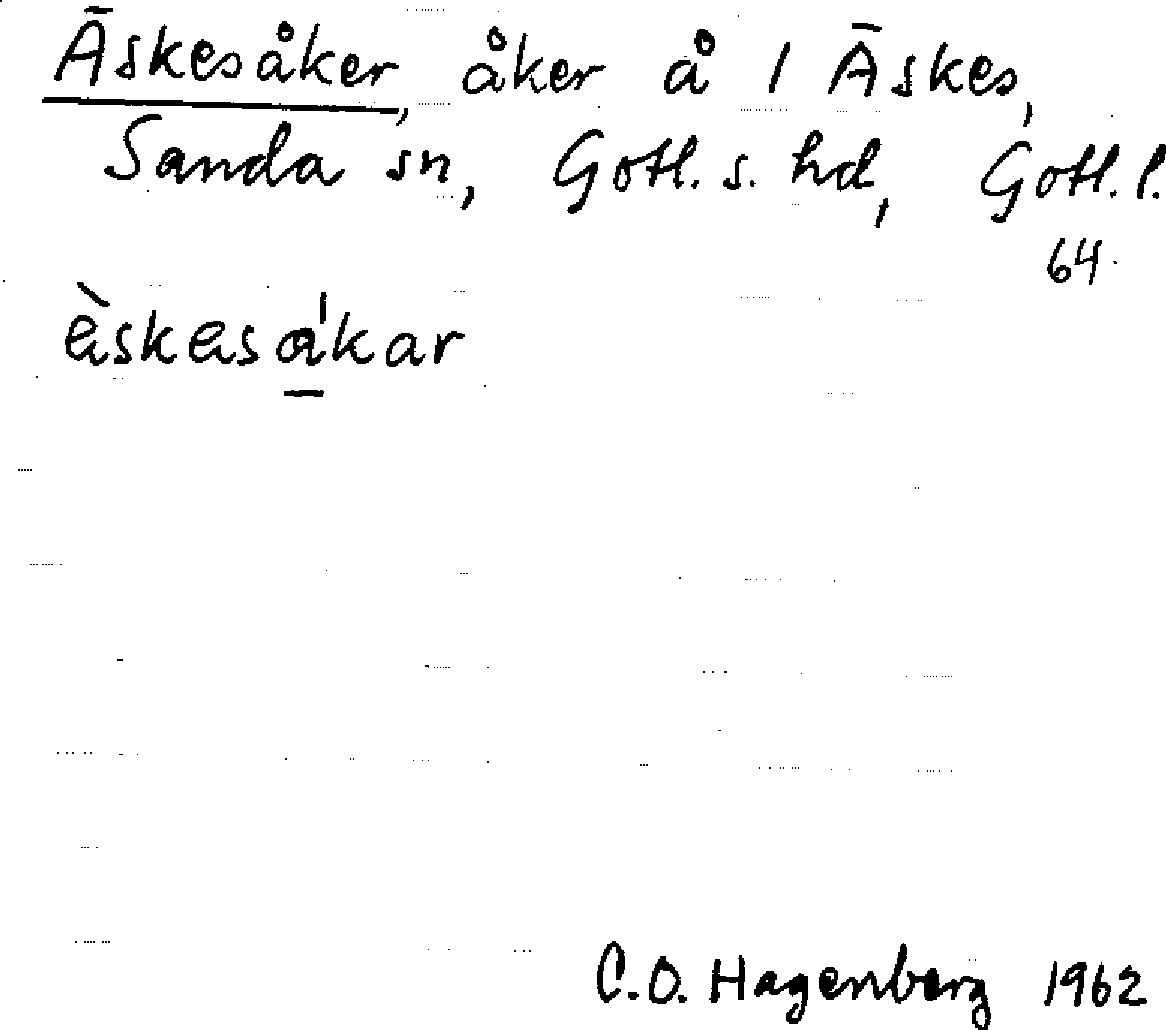 Äskesåker, åker å 1 Äskes,
Sanda sn, Gotl. s. hd, Gotl. l.
64
äskäsákar
C.O. Hagenberg 1962